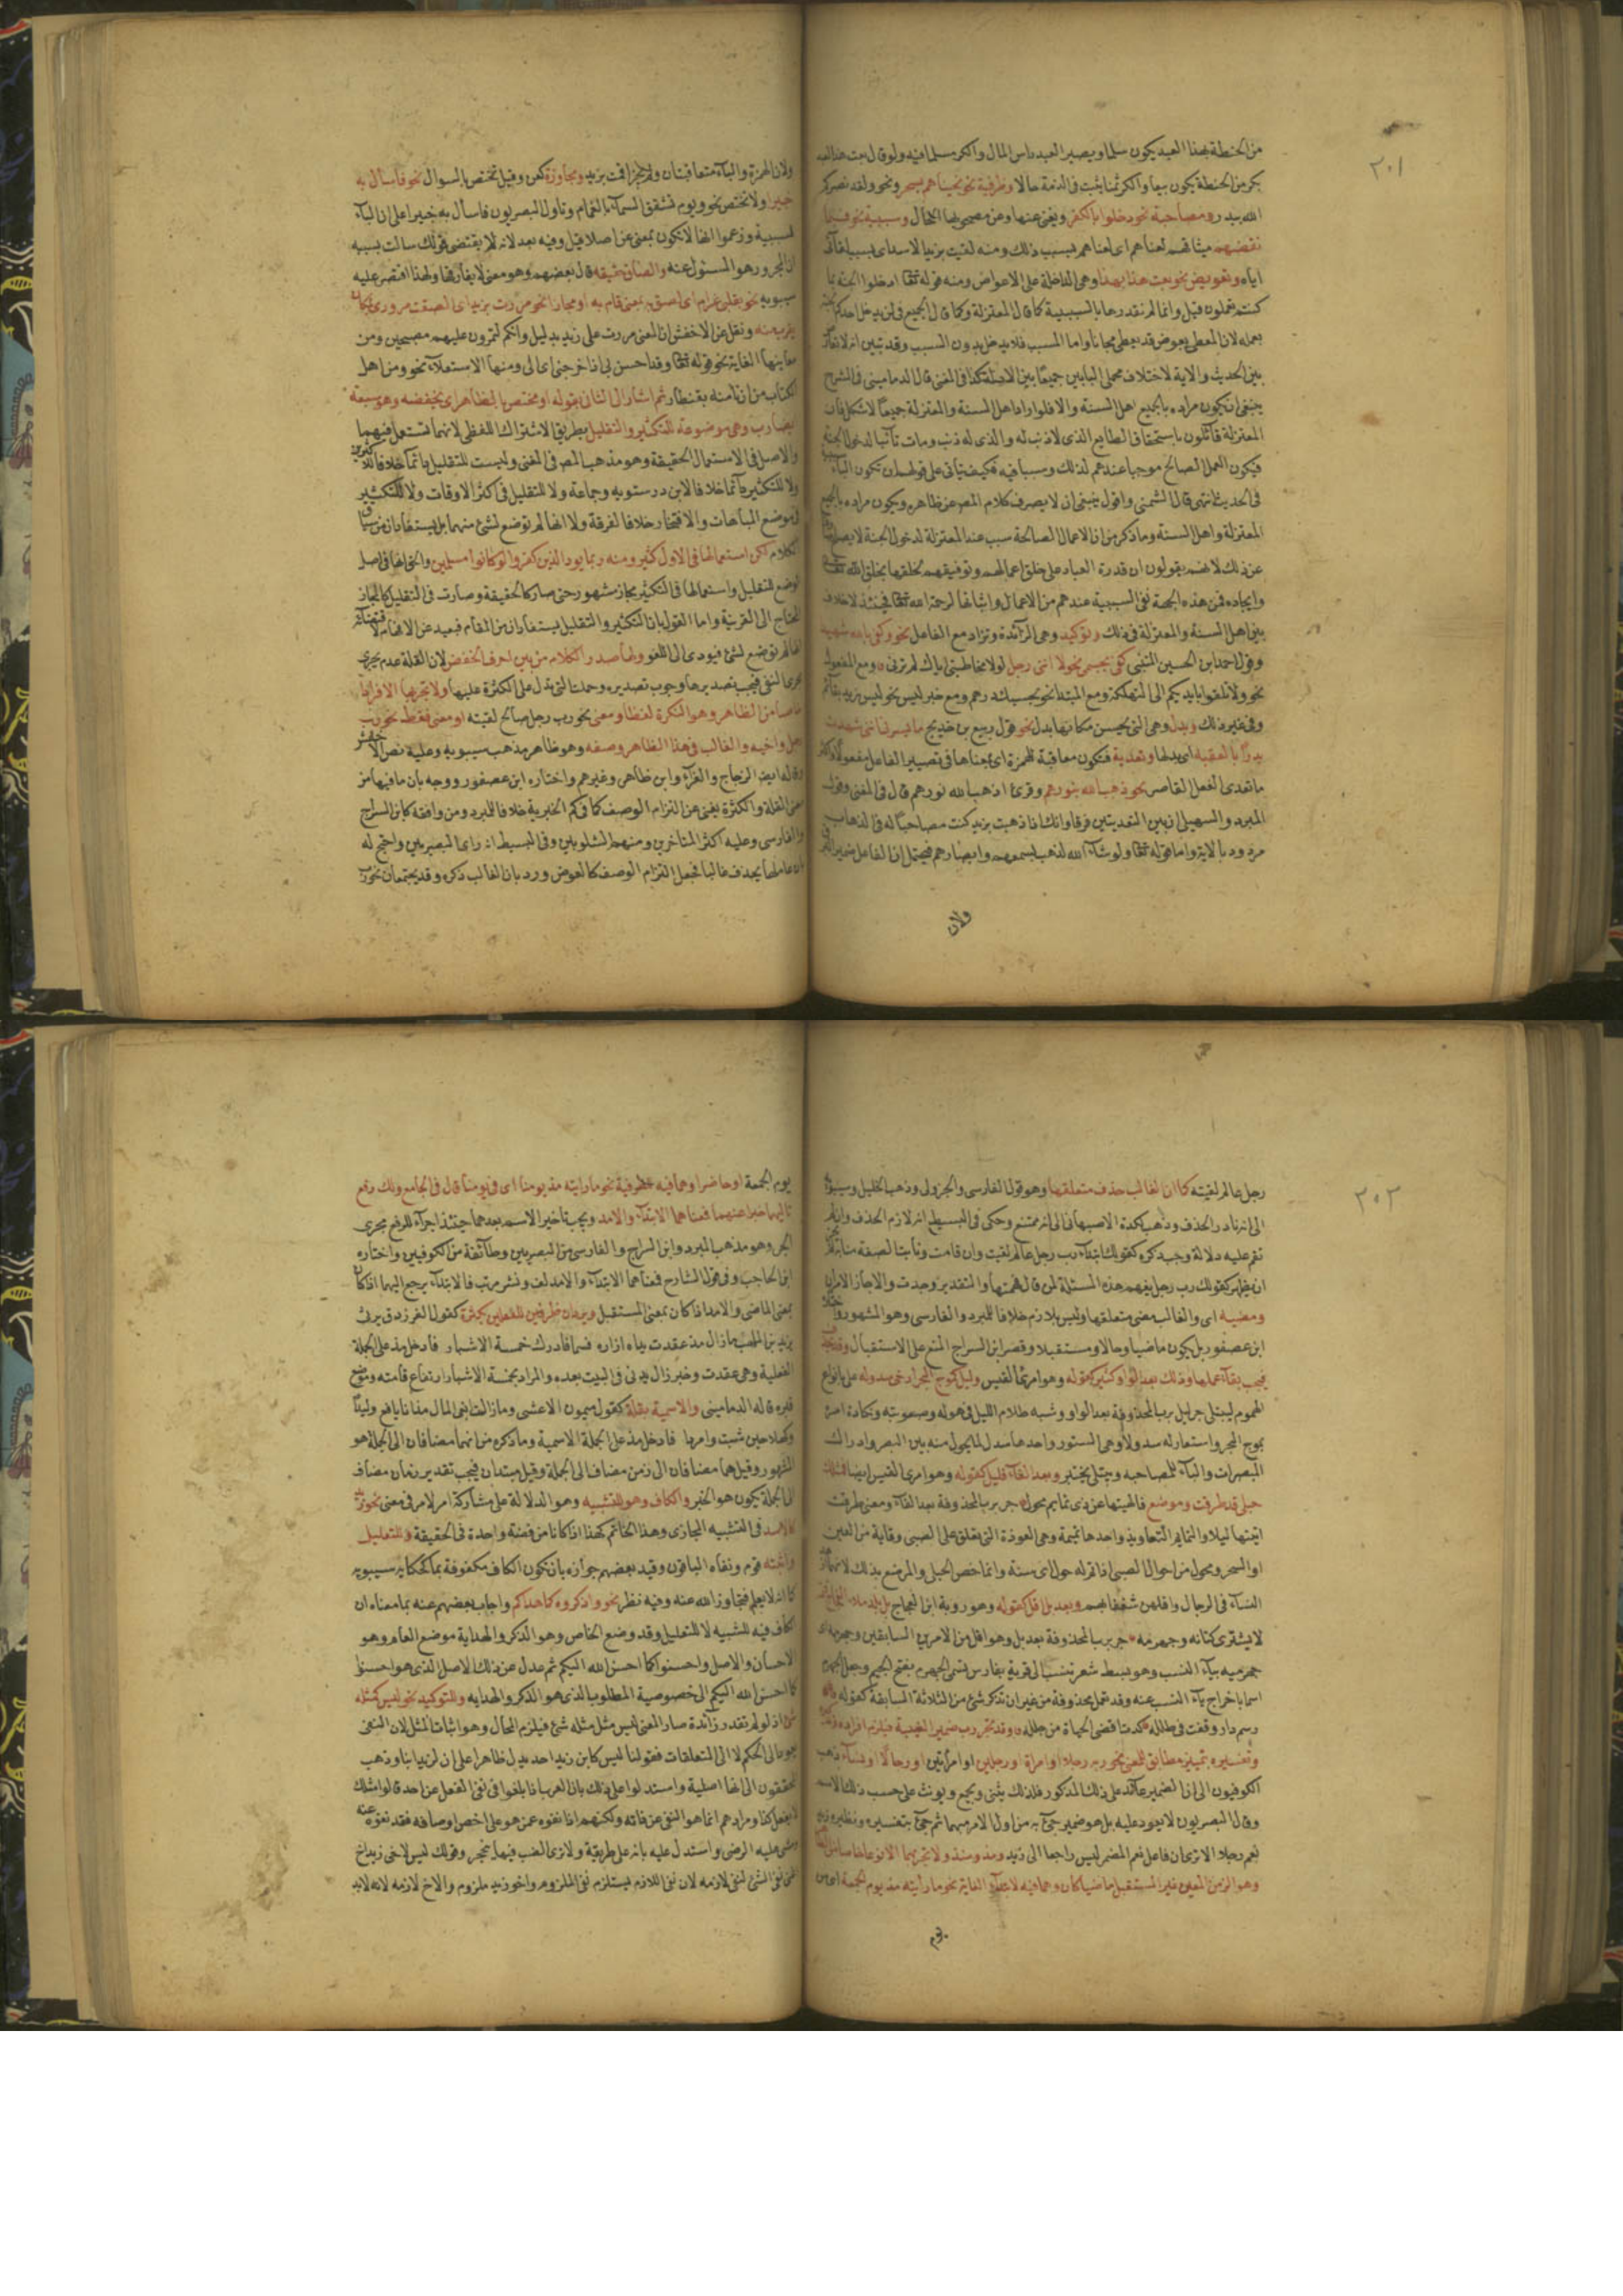 ٢٠١
من الحنطة بهذا العبد يكون سلما ويصير العبد راس المال والكر مسلما فيه ولو قال بعت هذا العبد
بكر من الحنطة يكون بيعا والكر ثمنا يثبت في الذمة حالا وظرفية نحو نجيناهم بسحر ونحو ولقد نصركم
الله ببدر ومصاحبة نحو دخلوا بالكفر ويغنى عنها وعن مصحوبها الحال وسببية نحو فبما
نقضهم ميثاقهم لعناهم اى لعناهم بسبب ذلك ومنه لقيت بزيد الاسد اى بسبب لقائى
اياه وتعويض نحو بعت هذا بهذا وهى الداخلة على الاعواض ومنه قوله تعالى ادخلوا الجنة بما
كنتم تعملون قيل وانما لم نقدرها بالسببية كما قال المعتزلة وكما قال الجميع في لن يدخل احدكم الجنة
بعمله لان المعطى بعوض قد يعطى مجانا واما المسبب فلا يدخل بدون السبب وقد تبين انه لا تعارض
بين الحديث والاية لاختلاف محملى البابين جميعا بين الادلة كذا في المغنى قال الدمامينى في الشرح
ينبغى ان يكون مراده بالجميع اهل السنة والا فلو اراد اهل السنة والمعتزلة جميعا لاشكل فان
المعتزلة قائلون باستحقاق الطايع الذى لا ذنب له والذى له ذنب ومات تائبا لدخول الجنة
فيكون العمل الصالح موجبا عندهم لذلك وسببا فيه فكيف يتأتى على قولهم ان تكون الباء
في الحديث انتهى قال الشمنى واقول ينبغى ان لا يصرف كلام المص عن ظاهره ويكون مراده بالجميع
المعتزلة واهل السنة وما ذكر من ان الاعمال الصالحة سبب عند المعتزلة لدخول الجنة لا يصلح
عن ذلك لانهم يقولون ان قدرة العباد على خلق اعمالهم وتوفيقهم لخلقها بخلق الله تعالى
وايجاده فمن هذه الجهة نفى السببية عندهم من الاعمال واثباتها لرحمة الله تعالى فحينئذ لا خلاف
بين اهل السنة والمعتزلة في ذلك وتوكيد وهى الزائدة وتزاد مع الفاعل نحو وكفى بالله شهيدا
وقول احمد ابن الحسين المتنبى كفى بجسمى نحولا اننى رجل لولا مخاطبتى اياك لم ترنى ومع المفعول
نحو ولا تلقوا بايديكم الى التهلكة ومع المبتدا نحو بحسبك درهم ومع خبر ليس نحو ليس زيد بقائم
وفي غير ذلك وبدل وهى التى يحسن مكانها بدل نحو قول ربيع بن خديج ما يسرنى اننى شهدت
بدرا بالعقبة اى بدلها وتعدية فتكون معاقبة للهمزة اى بمعناها في تصيير الفاعل مفعولا
ما تعدى الفعل القاصر نحو ذهب الله بنورهم وقرئ اذهب الله نورهم قال في المغنى وقول
المبرد والسهيلى ان بين التعديتين فرقا وانك اذا ذهبت بزيد كنت مصاحبا له في الذهاب
مردود بالاية واما قوله تعالى ولو شاء الله لذهب بسمعهم وابصارهم فيحتمل ان الفاعل ضمير
ولان
ولان الهمزة والباء متعاقبتان ولم يجز اقمت بزيد ومجاوزة كعن وقيل تختص بالسوال نحو فاسأل به
خبيرا ولا تختص نحو ويوم تشقق السماء بالغمام وتاول البصريون فاسأل به خبيرا على ان الباء
للسببية وزعموا انها لا تكون بمعنى عن اصلا قيل وفيه بعد لانه لا يقتضى قولك سالت بسببه
ان المجرور هو المسئول عنه والصاق حقيقة قال بعضهم وهو معنى لا يفارقها ولهذا اقتصر عليه
سيبويه نحو بقلبى غرام اى لصق به بمعنى قام به او مجازا نحو مررت بزيد اى الصقت مرورى بمكان
يقرب منه ونقل عن الاخفش ان المعنى مررت على زيد بدليل وانكم لتمرون عليهم مصبحين ومن
معانيها الغاية نحو قوله تعالى وقد احسن بى اذ اخرجنى اى الى ومنها الاستعلاء نحو ومن اهل
الكتاب من ان تامنه بقنطار ثم اشار الى الثانى بقوله او مختص بالظاهر اى بخفضه وهو سبعة
ايضا رب وهى موضوعة للتكثير والتقليل بطريق الاشتراك اللفظى لانهما تستعمل فيهما
والاصل في الاستعمال الحقيقة وهو مذهب المص في المغنى وليست للتقليل دائما خلافا للاكثرين
ولا للتكثير دائما خلافا لابن درستويه وجماعة ولا للتقليل في اكثر الاوقات ولا للتكثير
في موضع المباهات والافتخار خلافا لفرقة ولا انها لم توضع لشئ منهما بل يستفادان من سياق
الكلام لكن استعمالها في الاول كثير ومنه ربما يود الذين كفروا لو كانوا مسلمين والحق انها في اصل
الوضع للتقليل واستعمالها في التكثير مجاز مشهور حتى صار كالحقيقة وصارت في التقليل كالمجاز
المحتاج الى القرينة واما القول بان التكثير والتقليل يستفادان من المقام فبعيد عن الافهام لاقتضائه
انها لم توضع لشئ فيودى الى اللغو ولها صدر الكلام من بين احرف الخفض لان القلة عدم يجرى
مجرى النفى فيجب تصديرها وجوب تصديره وحملت التى تدل على الكثرة عليها ولا تجر بها الا فردا
خاصا من الظاهر وهو النكرة لفظا ومعنى نحو رب رجل صالح لقيته او معنى فقط نحو رب
رجل واخيه والغالب في هذا الظاهر وصفه وهو ظاهر مذهب سيبويه وعليه نص الاخفش
وقاله ايضا الزجاج والفراء وابن طاهر وغيرهم واختاره ابن عصفور ووجه بان ما فيها من
معنى القلة والكثرة يغنى عن التزام الوصف كما في كم الخبرية خلافا للمبرد ومن وافقه كابن السراج
والفارسى وعليه اكثر المتاخرين ومنهم الشلوبين وفي البسيط انه راى البصريين واحتج له
بان عاملها يحذف غالبا فجعل التزام الوصف كالعوض ورد بان الغالب ذكره وقد يجتمعان نحو رب
٢٠٢
رجل عالم لقيته كما ان الغالب حذف متعلقها وهو قول الفارسى والجزولى وذهب الخليل وسيبويه
الى انه نادر الحذف وذهب لكدة الاصبهانى الى انه ممتنع وحكى في البسيط انه لازم الحذف وان لم
تقم عليه دلالة وجب ذكره كقولك ابتداء رب رجل عالم لقيت وان قامت ونابت الصفة منابه
ان يظهر كقولك رب رجل يفهم هذه المسئلة لمن قال فهمتها والتقدير وجدت والا جاز الامران
ومضيه اى والغالب مضى متعلقها وليس بلازم خلافا للمبرد والفارسى وهو المشهور
ابن عصفور بل يكون ماضيا وحالا ومستقبلا وقصر ابن السراج المنع على الاستقبال وقد تحذف
فيجب بقاء عملها وذلك بعد الواو كثير كقوله وهو امرئ القيس وليل كموج البحر ارخى سدوله على بانواع
الهموم ليبتلى جر ليل برب المحذوفة بعد الواو وشبه ظلام الليل في هوله وصعوبته ونكادة امره
بموج البحر واستعار له سدولا وهى الستور واحدها سدل لما يحول منه بين البصر وادراك
المبصرات والباء للمصاحبة ويبتلى يختبر وبعد الفاء قليل كقوله وهو امرئ القيس ايضا فمثلك
حبلى قد طرقت وموضع فالهيتها عن ذى تمايم محول جر برب المحذوفة بعد الفاء ومعنى طرقت
اتيتها ليلا والتمايم التعاويذ واحدها تميمة وهى العوذة التى تعلق على الصبى وقاية من العين
او السحر ومحول من احوال الصبى اذا تم له حول اى سنة وانما خص الحبلى والمرضع بذلك لانهما
النساء في الرجال واقلهن شغفا بهم وبعد بل اقل كقوله وهو روبة ابن العجاج بل بلد ملء الفجاج قتمه
لا يشترى كتانه وجهرمه جر برب المحذوفة بعد بل وهو اقل من الامرين السابقين وجهرمه
جهرميه بياء النسب وهو بسط شعر تنسب الى قرية بفارس تسمى الجهرم بفتح الجيم وجعل الجهرم
اسما باخراج ياء النسب عنه وقد تعمل محذوفة من غير ان تذكر شئ من الثلاثة السابقة كقوله
رسم دار وقفت في طلله كدت اقضى الحياة من جلله وقد تجر رب ضمير الغيبة فيلزم افراده
وتفسيره بتمييز مطابق للمعنى نحو ربه رجلا او امراة او رجلين او امراتين او رجالا او نساء وذهب
الكوفيون الى ان الضمير عائد على ذلك المذكور فلذلك يثنى ويجمع ويونث على حسب ذلك الاسم
وقال البصريون لا يعود عليه بل هو ضمير جئ به من اول الامر مبهما ثم جئ بتفسيره ونظيره
نعم رجلا الا ترى ان فاعل نعم المضمر ليس راجعا الى زيد ومذ ومنذ ولا تجر بهما الا نوعا خاصا
وهو الزمن المعين غير المستقبل ماضيا كان وهما فيه لابتداء الغاية نحو ما رايته مذ يوم الجمعة اى من
يوم
يوم الجمعة او حاضرا وهما فيه ظرفية نحو ما رايته مذ يومنا اى في يومنا قال في الجامع ولك رفع
تاليهما خبرا عنهما فمعناهما الابتداء والامد ويجب تاخير الاسم بعدهما حينئذ اجراء للرفع مجرى
الجر وهو مذهب المبرد وابن السراج والفارسى من البصريين وطائفة من الكوفيين واختاره
ابن الحاجب وفي قول الشارح فمعناهما الابتداء والامد لف ونشر مرتب فالابتداء يرجع اليهما اذا كان
بمعنى الماضى والامد اذا كان بمعنى المستقبل ويردان ظرفين للفعلين بكثرة كقول الفرزدق يرثى
يزيد بن المهلب ما زال مذ عقدت يداه ازاره فسما فادرك خمسة الاشبار فادخل مذ على الجملة
الفعلية وهى عقدت وخبر زال يدنى في البيت بعده والمراد بخمسة الاشبار ارتفاع قامته وموضع
قبره قاله الدمامينى والاسمية بقلة كقول ميمون الاعشى وما زلت ابغى المال مذ انا يافع وليدا
وكهلا حين شبت وامردا فادخل مذ على الجملة الاسمية وما ذكره من انهما مضافان الى الجملة هو
المشهور وقيل هما مضافان الى زمن مضاف الى الجملة وقيل مبتدان فيجب تقدير زمان مضاف
الى الجملة يكون هو الخبر والكاف وهو للتشبيه وهو الدلالة على مشاركة امر لامر في معنى نحو زيد
كالاسد في التشبيه المجازى وهذا الخاتم كهذا اذا كانا من فضة واحدة في الحقيقة وللتعليل
واثبته قوم ونفاه الباقون وقيد بعضهم جوازه بان تكون الكاف مكفوفة بما كحكاية سيبويه
كما انه لا يعلم فتجاوز الله عنه وفيه نظر نحو واذكروه كما هداكم واجاب بعضهم عنه بما معناه ان
الكاف فيه للتشبيه لا للتعليل وقد وضع الخاص وهو الذكر والهداية موضع العام وهو
الاحسان والاصل واحسنوا كما احسن الله اليكم ثم عدل عن ذلك الاصل الذى هو احسنوا
كما احسن الله اليكم الى خصوصية المطلوب الذى هو الذكر والهدايه وللتوكيد نحو ليس كمثله
شئ اذ لو لم تقدر زائدة صار المعنى ليس مثل مثله شئ فيلزم المحال وهو اثبات المثل لان النفى
يعود الى الحكم لا الى المتعلقات فقولنا ليس كابن زيد احد يدل ظاهرا على ان لزيد ابنا وذهب
المحققون الى انها اصلية واستدلوا على ذلك بان العرب اذا بلغوا في نفى الفعل عن احد قالوا مثلك
لا يفعل كذا ومرادهم انما هو النفى عن ذاته ولكنهم اذا نفوه عمن هو على اخص اوصافه فقد نفوه عنه
ومشى عليه الرضى واستدل عليه بانه على طريقة ولا ترى الضب فيها ينجحر وقولك ليس لاخى زيد اخ
اى نفى الشئ لنفى لازمه لان نفى اللازم يستلزم نفى الملزوم واخو زيد ملزوم والاخ لازمه لانه لابد